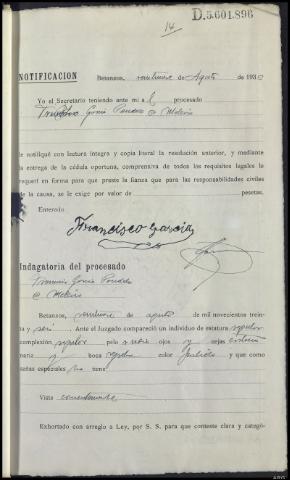 14
D.5.601.896
NOTIFICACION Betanzos, veintinueve de Agosto de 193
Yo el Secretario teniendo ante mi al procesado
Francisco García
le notifiqué con lectura íntegra y copia literal la resolución anterior, y mediante
la entrega de la cédula oportuna, comprensiva de todos los requisitos legales le
requerí en forma para que preste la fianza que para las responsabilidades civiles
de la causa, se le exige por valor de pesetas.
Enterado
Francisco García
Indagatoria del procesado
Francisco García
Betanzos, veintinueve de agosto de mil novecientos treinta
y seis. Ante el Juzgado compareció un individuo de estatura regular
complexión regular pelo ojos y cejas castaño
nariz y boca regular color pálido y que como
señas especiales no tiene
Viste
Exhortado con arreglo a Ley, por S. S. para que conteste clara y categó-